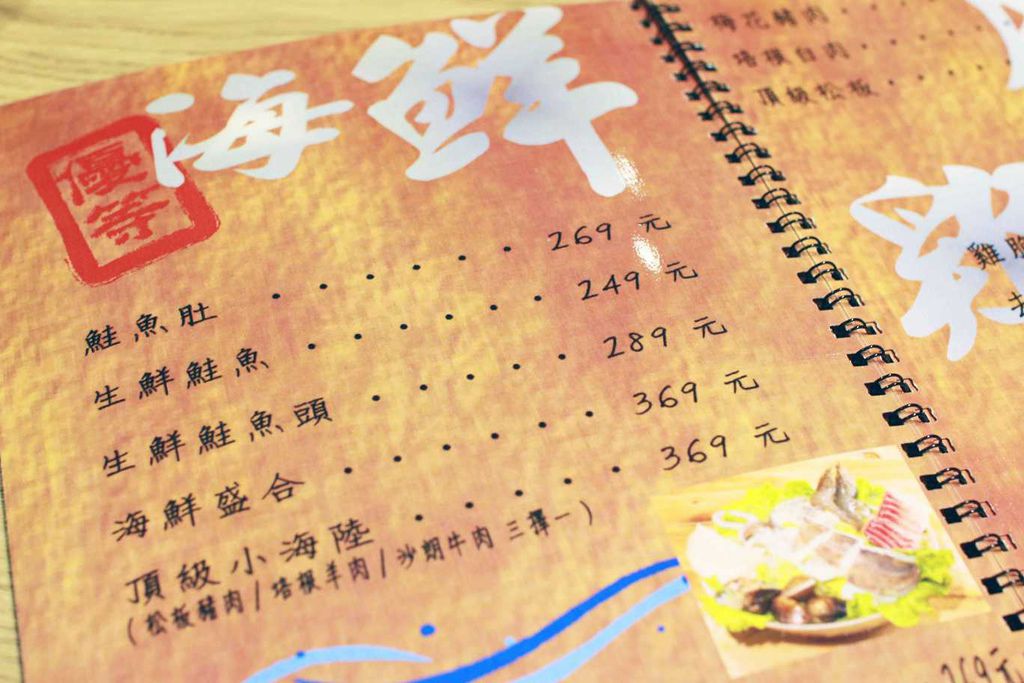 優等
海鮮
鮭魚肚 269元
生鮮鮭魚 249元
生鮮鮭魚頭 289元
海鮮盛合 369元
頂級小海陸 369元
(松板豬肉/培根羊肉/沙朗牛肉 三擇一)
梅花豬肉
培根白肉
頂級松板
雞腿
269元